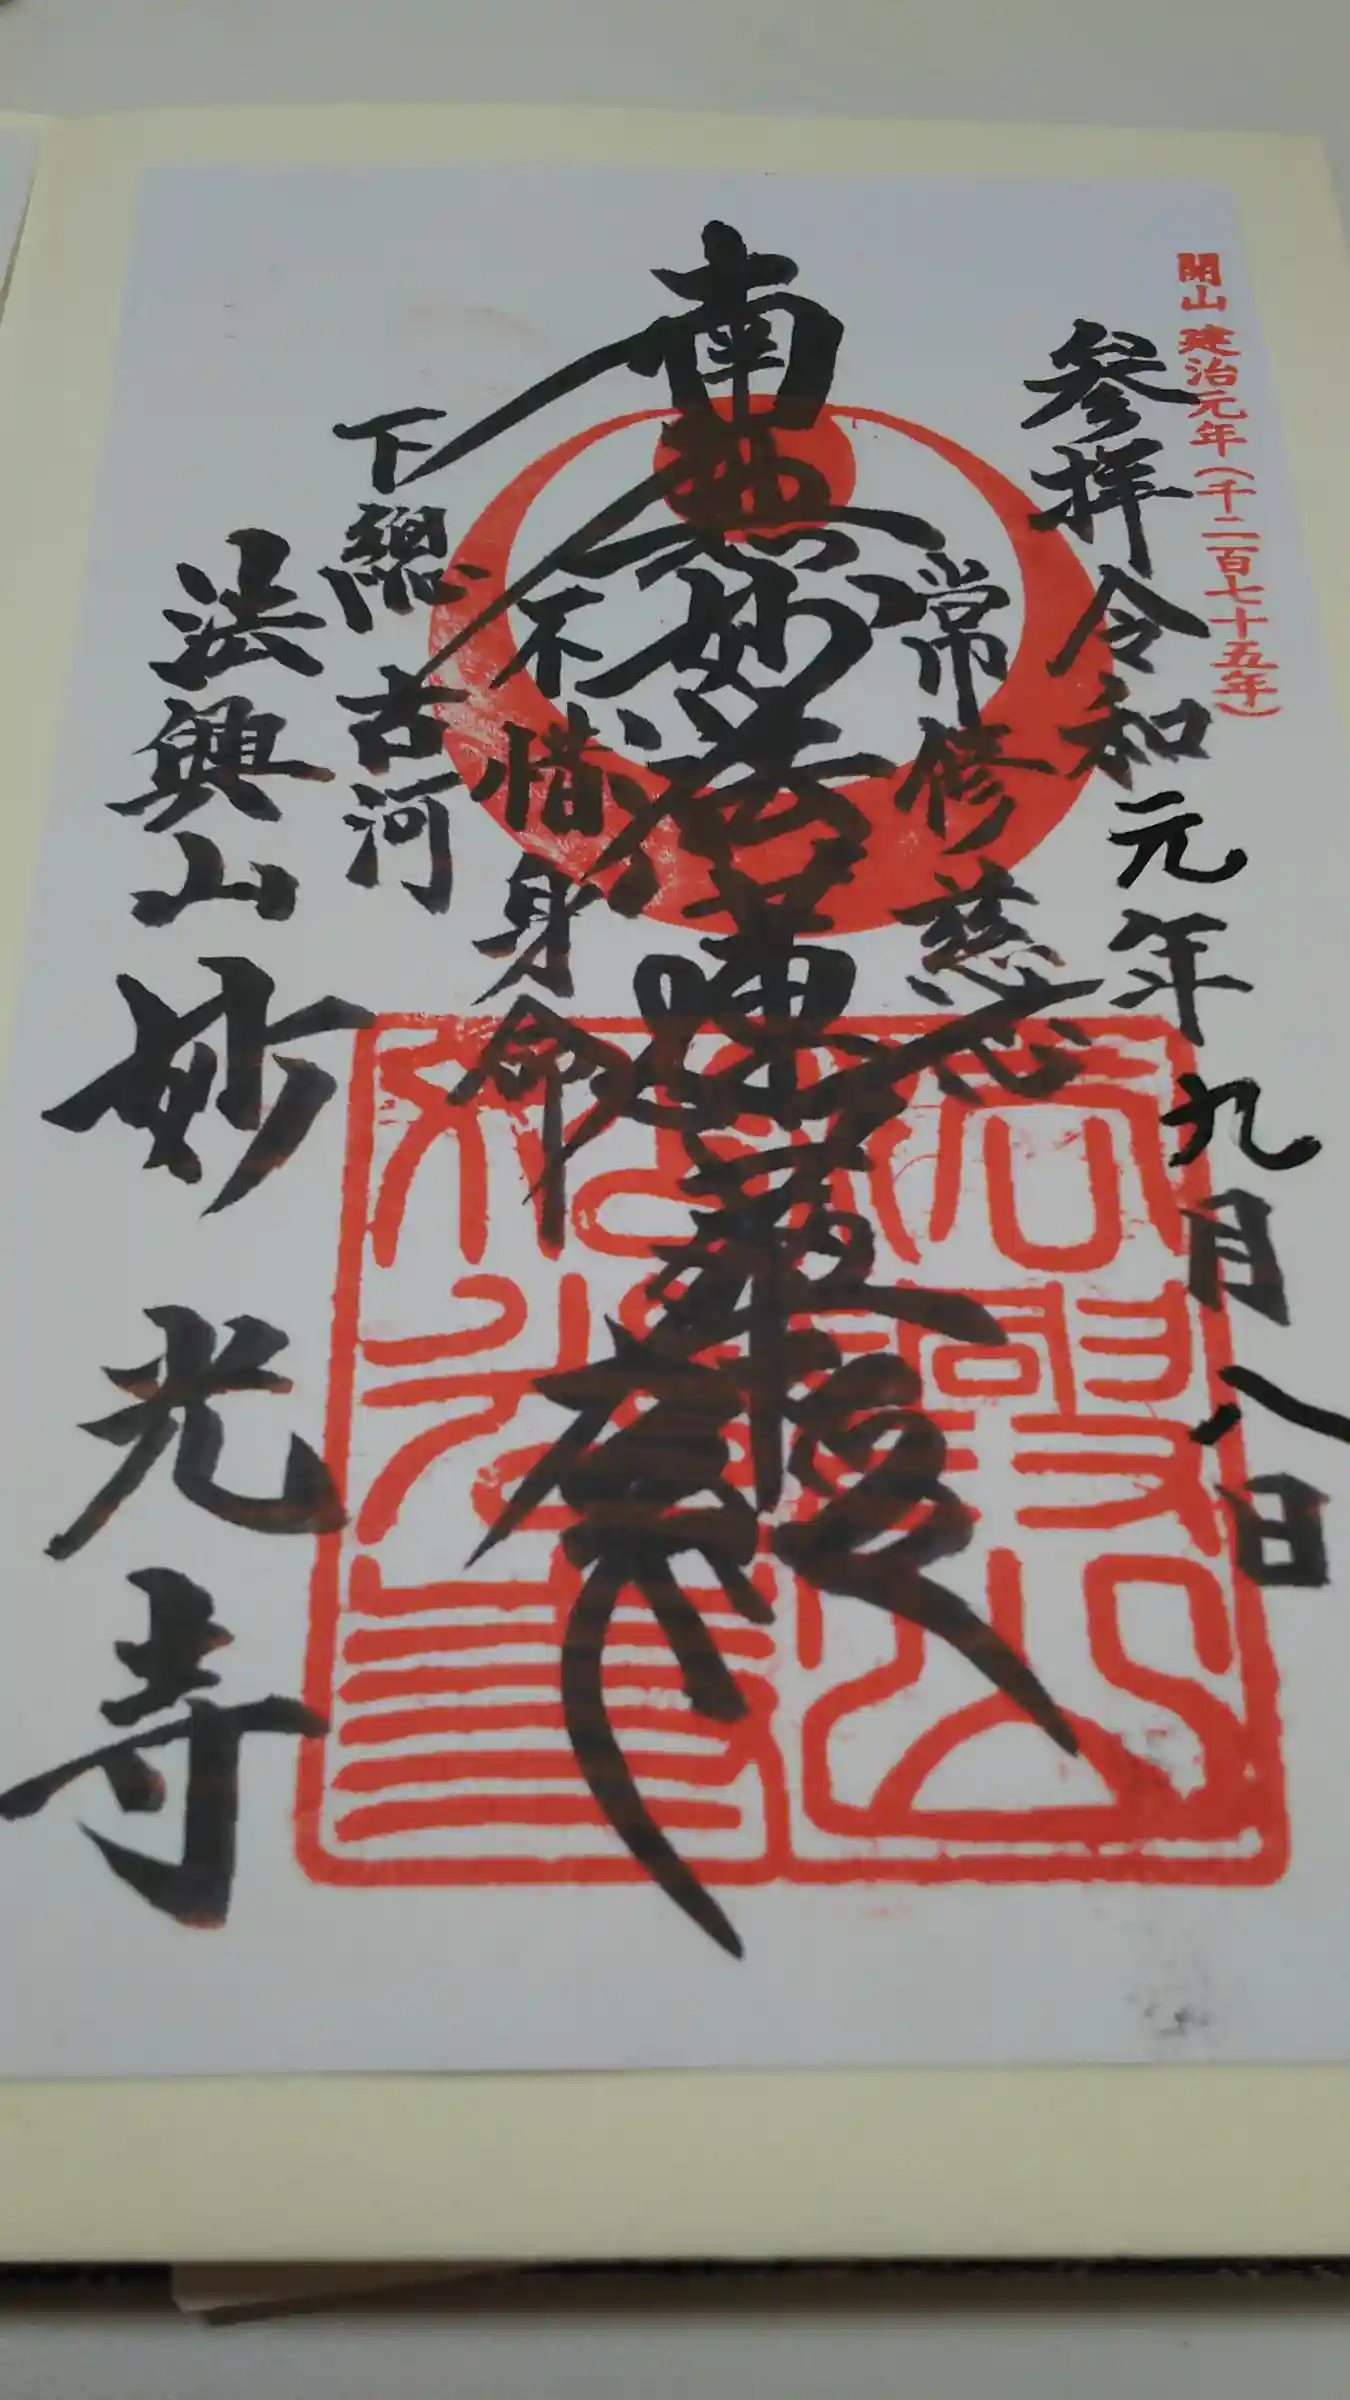 開山 建治元年(千二百七十五年)
参拝令和元年九月八日
常修慈心
南無妙法蓮華経
不惜身命
下総古河
法興山妙光寺